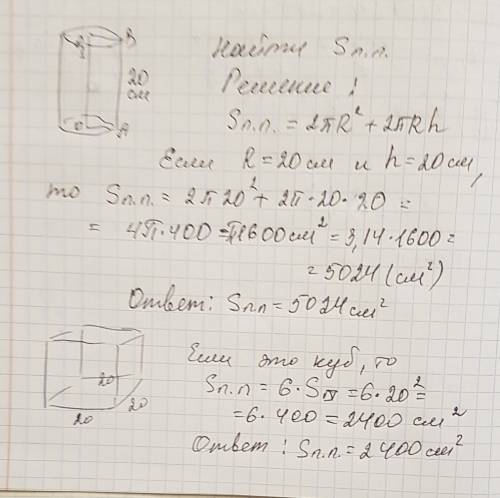 Найти Sп.п.
B
20
см
O
A
Решение:
Sп.п. = 2πR² + 2πRh
Если R = 20 см и h = 20 см,
то Sп.п. = 2π20² + 2π·20·20 =
= 4π·400 = π1600 см² = 3,14·1600 =
= 5024 (см²)
Ответ: Sп.п = 5024 см²
20
20
20
Если это куб, то
Sп.п = 6·S = 6·20² =
= 6·400 = 2400 см²
Ответ: Sп.п. = 2400 см²